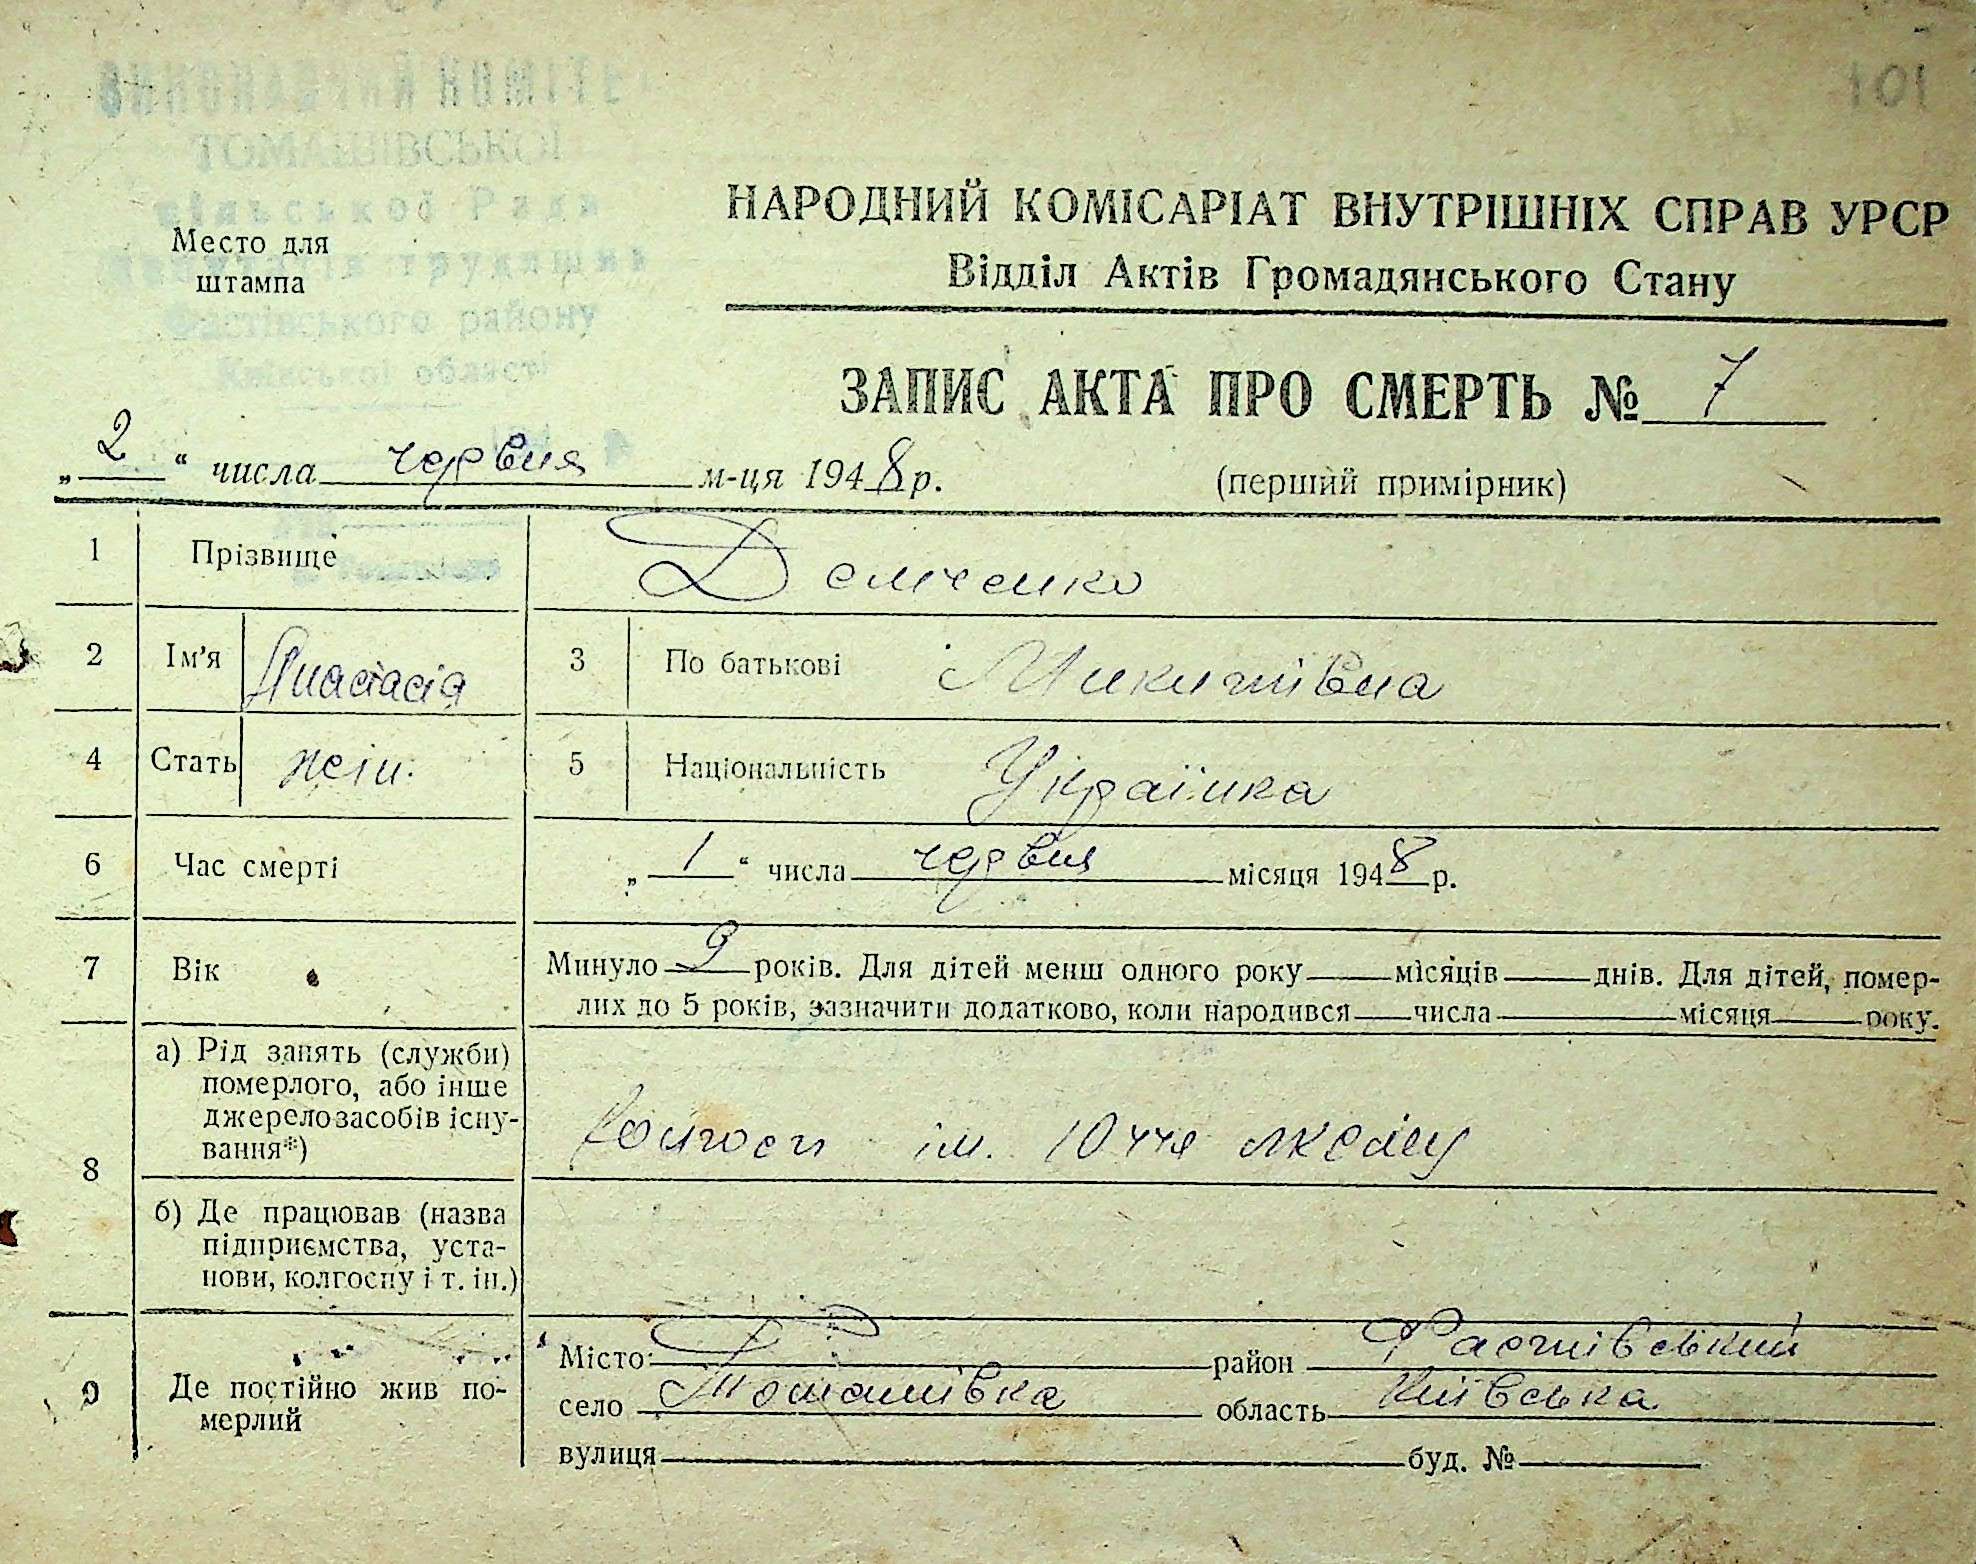 101
ВИКОНАВЧИЙ КОМІТЕТ
ТОМАШІВСЬКОЇ
сільської Ради
депутатів трудящих
Фастівського району
Київської області
Место для
штампа
НАРОДНИЙ КОМІСАРІАТ ВНУТРІШНІХ СПРАВ УРСР
Відділ Актів Громадянського Стану
ЗАПИС АКТА ПРО СМЕРТЬ № 7
„2“ числа червня м-ця 1948 р.
(перший примірник)
1 Прізвище Демченко
2 Ім'я Анастасія 3 По батькові Микитівна
4 Стать жін. 5 Національність Українка
6 Час смерті „1“ числа червня місяця 1948 р.
7 Вік Минуло 9 років. Для дітей менш одного року місяців днів. Для дітей, помер-
лих до 5 років, зазначити додатково, коли народився числа місяця року.
8 а) Рід занять (служби)
померлого, або інше
джерело засобів існу-
вання*)
Колгосп ім. 10 ччя ЛКСМУ
б) Де працював (назва
підприємства, уста-
нови, колгоспу і т. ін.)
9 Де постійно жив по-
мерлий
Місто район Фастівський
село Томашівка область Київська
вулиця буд. №